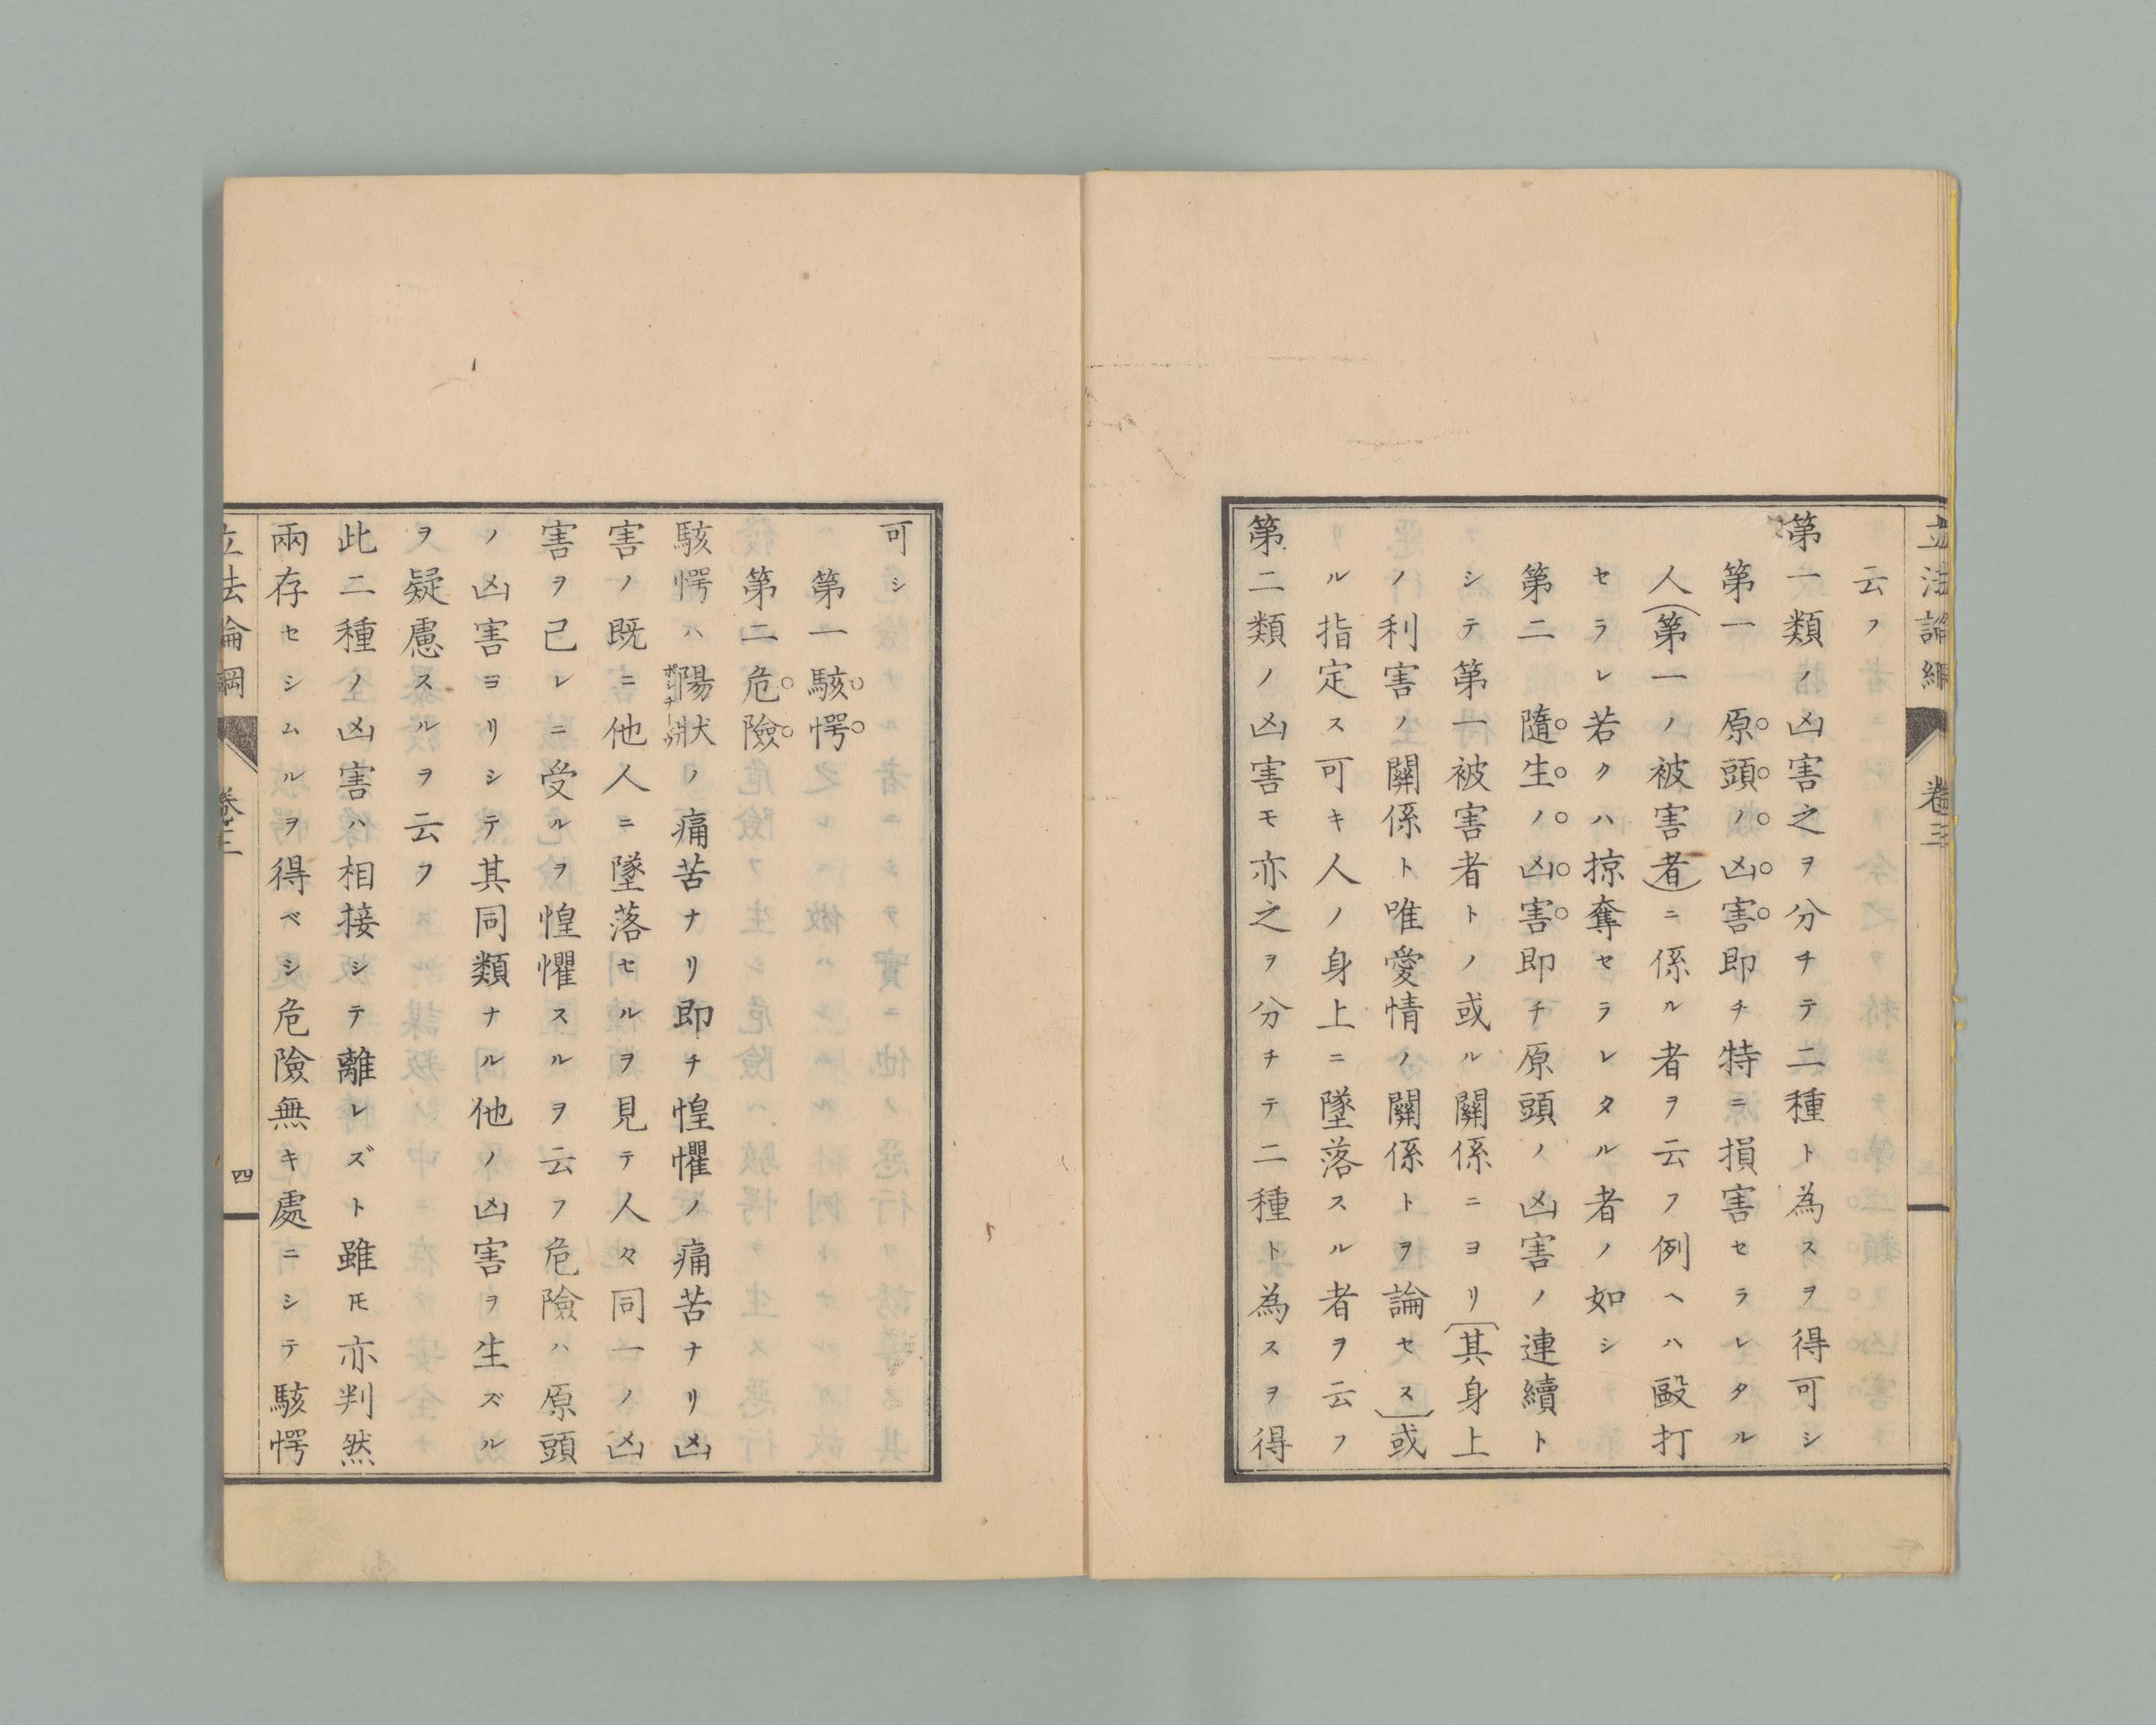 立法論綱 卷三
云フ
第一類ノ凶害之ヲ分チテ二種ト為スヲ得可シ
第一原頭ノ凶害即チ特ニ損害セラレタル
人(第一ノ被害者)ニ係ル者ヲ云フ例ヘハ毆打
セラレ若クハ掠奪セラレタル者ノ如シ
第二隨生ノ凶害即チ原頭ノ凶害ノ連續ト
シテ第一被害者トノ或ル關係ニヨリ〔其身上
ノ利害ノ關係ト唯愛情ノ關係トヲ論セス〕或
ル指定ス可キ人ノ身上ニ墜落スル者ヲ云フ
第二類ノ凶害モ亦之ヲ分チテ二種ト為スヲ得
可シ
第一駭愕
第二危險
駭愕ハ陽狀ノ痛苦ナリ即チ惶懼ノ痛苦ナリ凶
害ノ既ニ他人ニ墜落セルヲ見テ人々同一ノ凶
害ヲ己レニ受ルヲ惶懼スルヲ云フ危險ハ原頭
ノ凶害ヨリシテ其同類ナル他ノ凶害ヲ生ズル
ヲ疑慮スルヲ云フ
此二種ノ凶害ハ相接シテ離レズト雖モ亦判然
兩存セシムルヲ得ベシ危險無キ處ニシテ駭愕
立法論綱 卷三 四